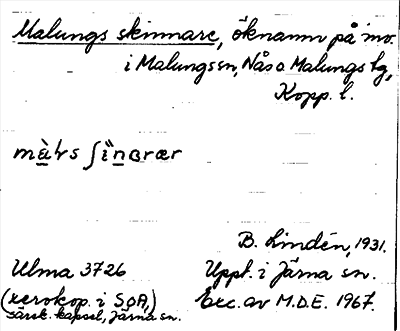 Malungs skinnare, öknamn på inv.
i Malungs sn, Nås o. Malungs tg,
Kopp. l.
B. Lindén, 1931.
Ulma 3726 Uppt. i Järna sn.
(xerokop. i SOÄ, Exc. av M.D.E. 1967.
särsk. kapsel, Järna sn.)